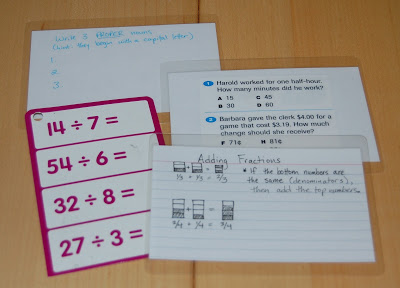 Write 3 PROPER nouns
(hint: they begin with a capital letter)
1.
2.
3.
1 Harold worked for one half-hour.
How many minutes did he work?
A 15 C 45
B 30 D 60
2 Barbara gave the clerk $4.00 for a
game that cost $3.19. How much
change should she receive?
F 71¢ H 81¢
14 ÷ 7 =
54 ÷ 6 =
32 ÷ 8 =
27 ÷ 3 =
Adding Fractions
+ =
1/3 + 1/3 = 2/3
* If the bottom numbers are
the same (denominators),
then add the top numbers.
+ =
2/4 + 1/4 = 3/4